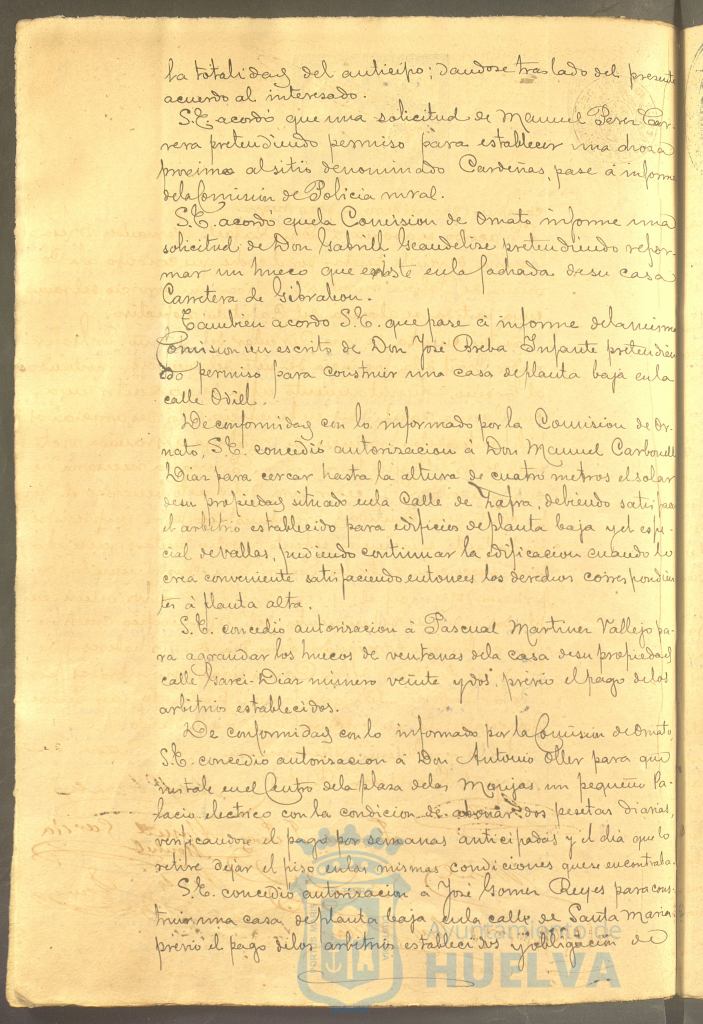 la totalidad del anticipo; dandose traslado del presente
acuerdo al interesado.
S.E. acordó que una solicitud de Manuel Perez Car-
rera pretendiendo permiso para establecer una choza
proxima al sitio denominado Cardeñas, pase á informe
de la Comisión de Policia rural.
S.E. acordó que la Comision de Ornato informe una
solicitud de Don Gabriel pretendiendo refor-
mar un hueco que existe en la fachada de su casa
Carretera de Gibraleon.
Tambien acordo S.E. que pase á informe de la misma
Comision un escrito de Don José Breba Infante pretendien
do permiso para construir una casa de planta baja en la
calle Odiel.
De conformidad con lo informado por la Comision de Or-
nato, S.E. concedió autorizacion á Don Manuel Carbonell
Diaz para cercar hasta la altura de cuatro metros el solar
de su propiedad situado en la Calle de Zafra, debiendo satisfacer
el arbitrio establecido para edificios de planta baja y el espe-
cial de vallas, pudiendo continuar la edificacion cuando lo
crea conveniente satisfaciendo entonces los derechos correspondien
tes á planta alta.
S.E. concedio autorizacion á Pascual Martinez Vallejo pa-
ra agrandar los huecos de ventanas de la casa de su propiedad
calle Garci-Diaz numero veinte y dos, previo el pago de los
arbitrios establecidos.
De conformidad con lo informado por la Comision de Ornato,
S.E. concedió autorizacion á Don Antonio Oller para que
instale en el Centro de la plaza de las Monjas un pequeño Pa-
lacio electrico con la condicion de abonar dos pesetas diarias,
verificandose el pago por semanas anticipadas y el dia que lo
retire dejar el piso en las mismas condiciones que se encontraba.
S.E. concedio autorizacion á José Gomez Reyes para cons-
truir una casa de planta baja en la calle de Santa Maria
previo el pago de los arbitrios establecidos y obligación de
Ayuntamiento de
HUELVA